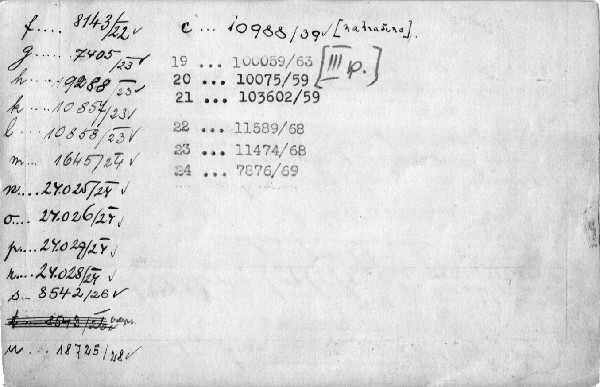 f.... 8143/22 ✓
g.... 7405/23 ✓
h.... 19288/23 ✓
k... 10857/23 ✓
l.... 10858/23 ✓
m... 1645/24 ✓
n.... 24.025/24 ✓
o.... 24.026/24 ✓
p.... 24.027/24 ✓
r.... 24.028/24 ✓
s... 8542/26 ✓
8543/26
u.... 18745/48 ✓
c ... 10988/39 ✓ [nahrazeno].
19 ... 100059/63 [III p.]
20 ... 10075/59
21 ... 103602/59
22 ... 11589/68
23 ... 11474/68
24 ... 7876/69